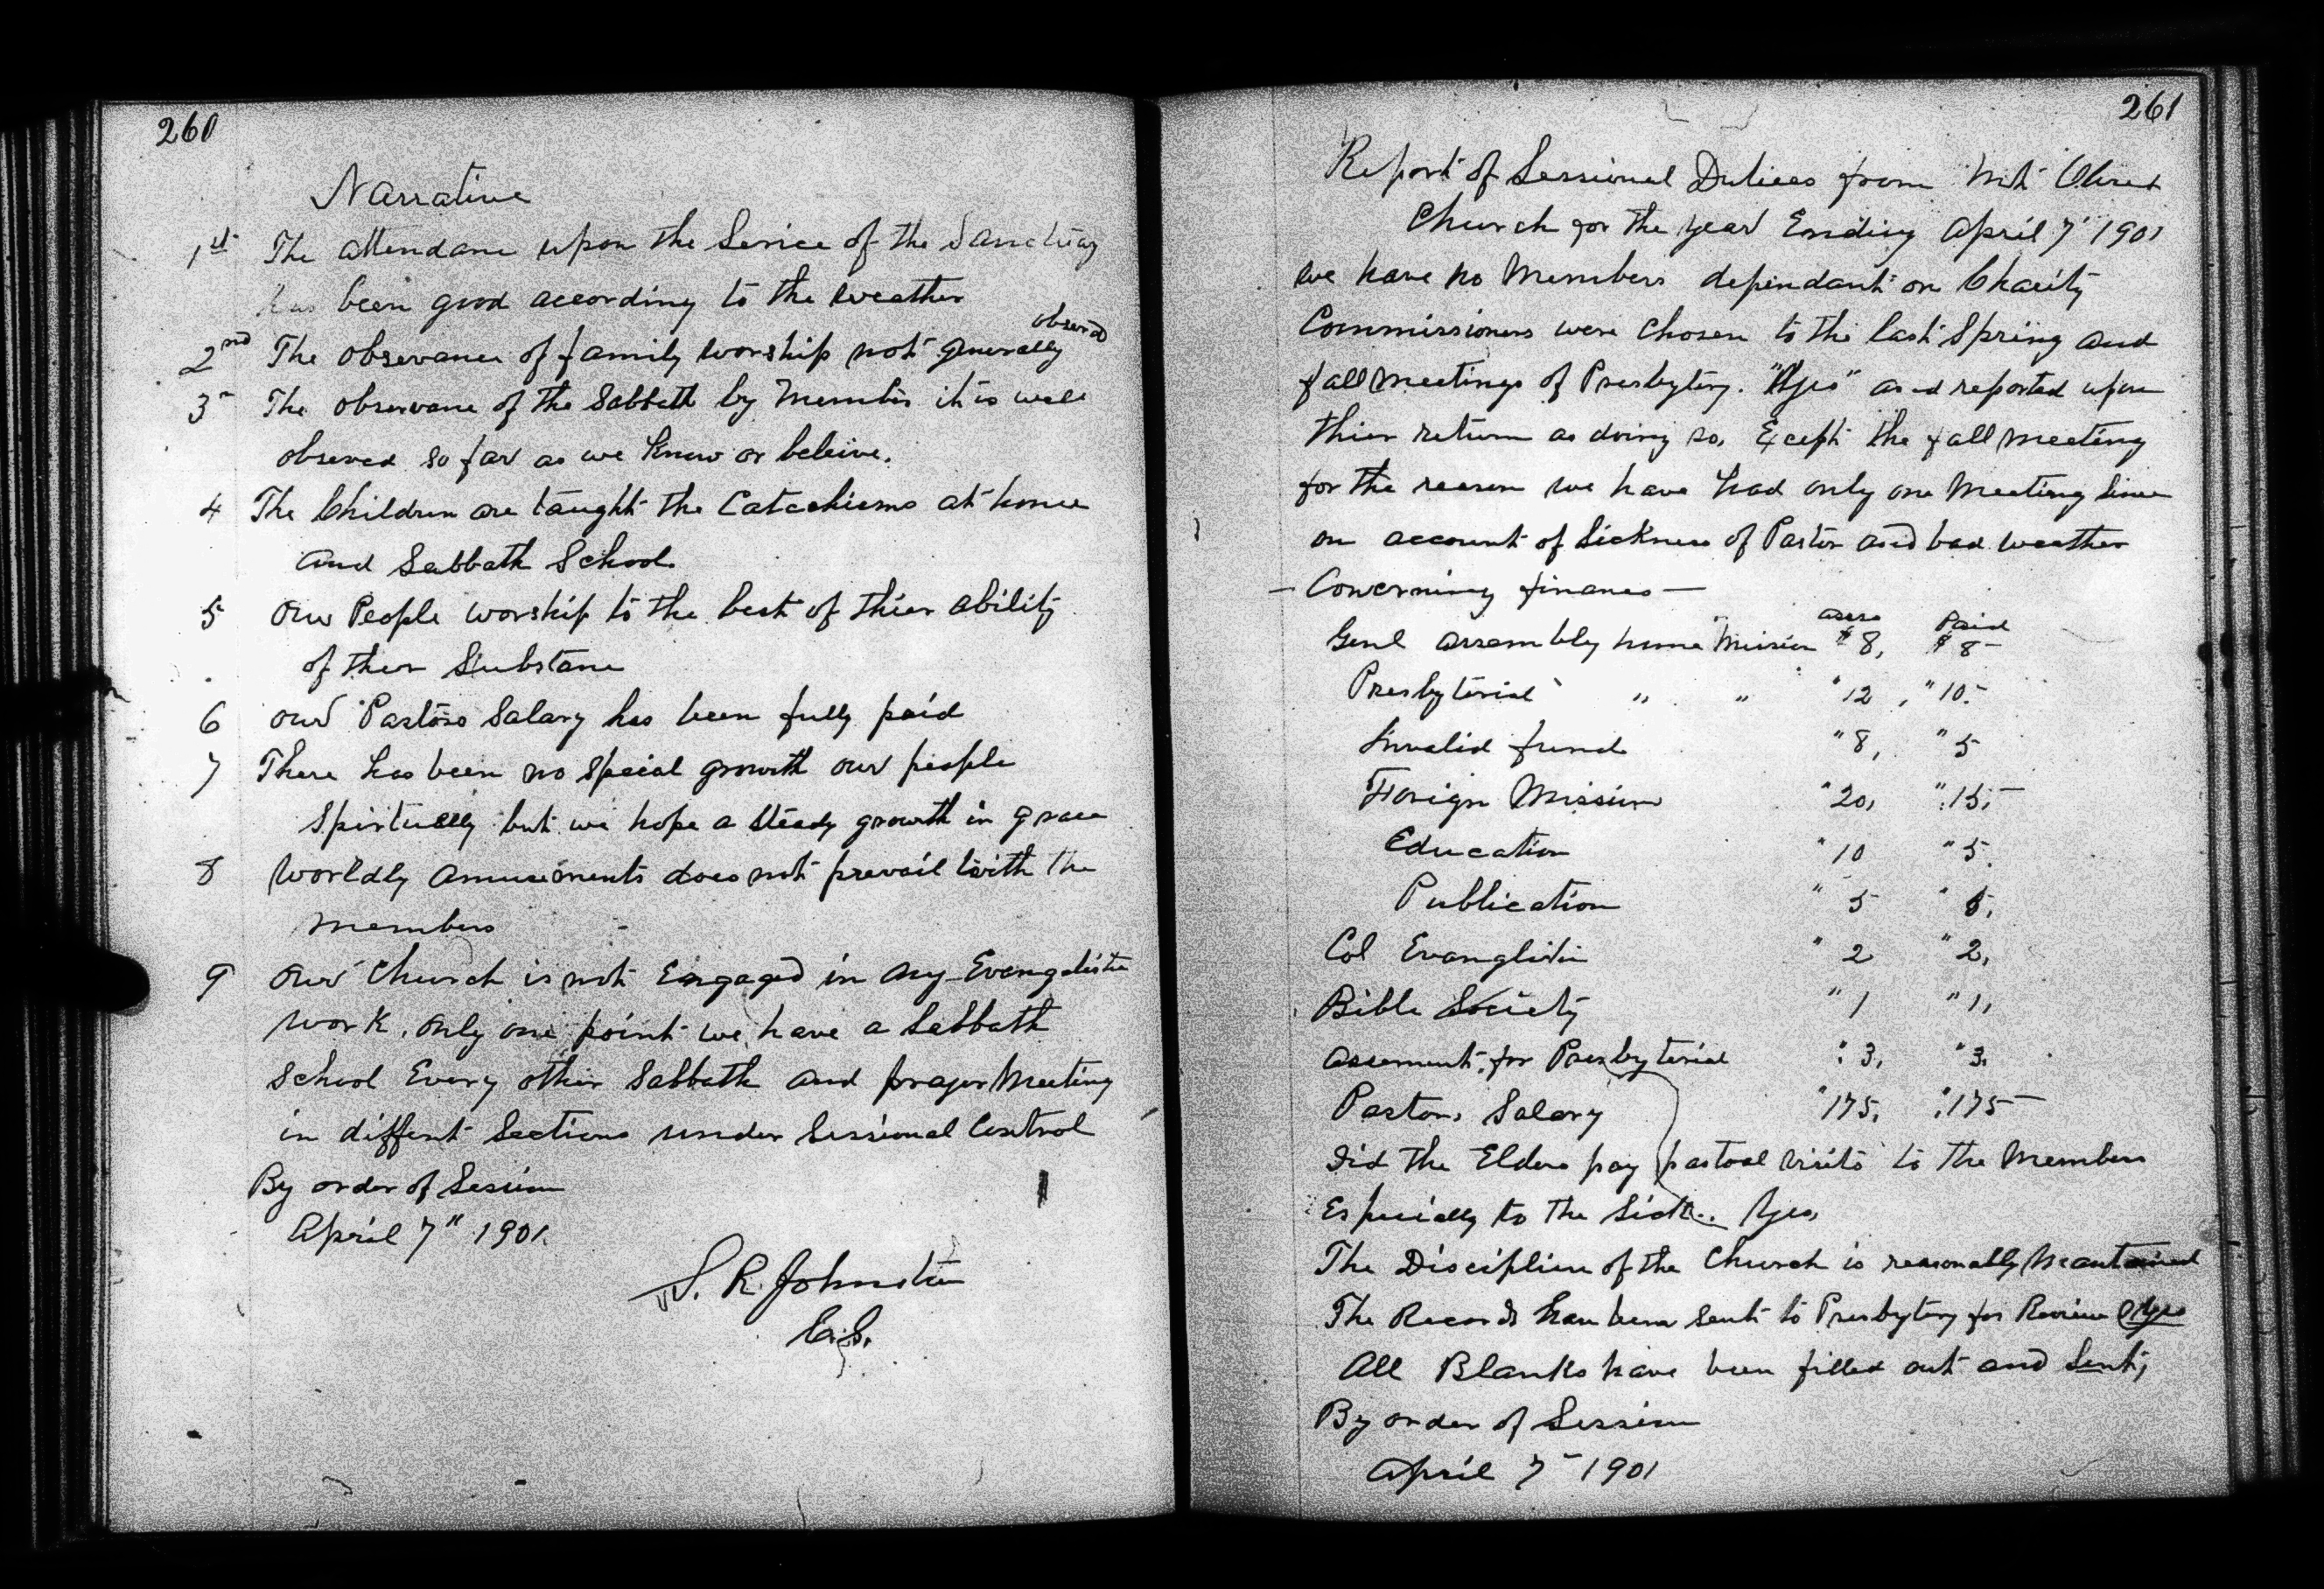 260
Narrative
1st The attendanc upon the Service of the Sanctuary
has been good according to the weather
2nd The observance of family worship not generally observed
3" The observanc of the Sabbath by Members it is well
observed so far as we know or beleive.
4 The Children are taught the Catechisms at home
and Sabbath School.
5 Our People worship to the best of thier ability
of ther Substanc
6 our Pastors Salary has been fully paid
7 There has been no special growth our people
Spirtually but we hope a steady growth in grace
8 Worldly amusements does not prevail with the
members
9 Our Church is not Engaged in any Evangelistic
work, only one point we have a Sabbath
School Every other Sabbath and prayer Meeting
in diffent Sections under Sessional Control
By order of Session
April 7" 1901.
S. R. Johnston
C.S.
261
Report of Sessional Duties from Mt Olivet
Church for the year Ending April 7" 1901
we have no Members dependant on Charity
Commissioners were chosen to the last Spring and
fall meetings of Presbytery. "Yes" and reported upon
thier return as doing so, Except the fall meeting
for the reason we have had only one Meeting Since
on account of Sickness of Pastor and bad weather
— Concerning finances —
asses Paid
Genl assembly home Mission $8, $8—
Presbyterial " " "12, "10.
Invalid fund "8, "5
Foreign Mission "20, "15,—
Education "10 "5.
Publication "5 "5,
Col Evanglistic "2 "2,
Bible Society "1 "1,
Assement for Presbyterial "3, "3.
Pastors Salary "175, "175—
Did the Elders pay pastoal visits to the Members
Especially to the Sick.. Yes,
The Discipline of the Church is reasonally Meantained
The Records have been sent to Presbytery for Review Yes
All Blanks have been filled out and Sent,
By order of Session
April 7" 1901